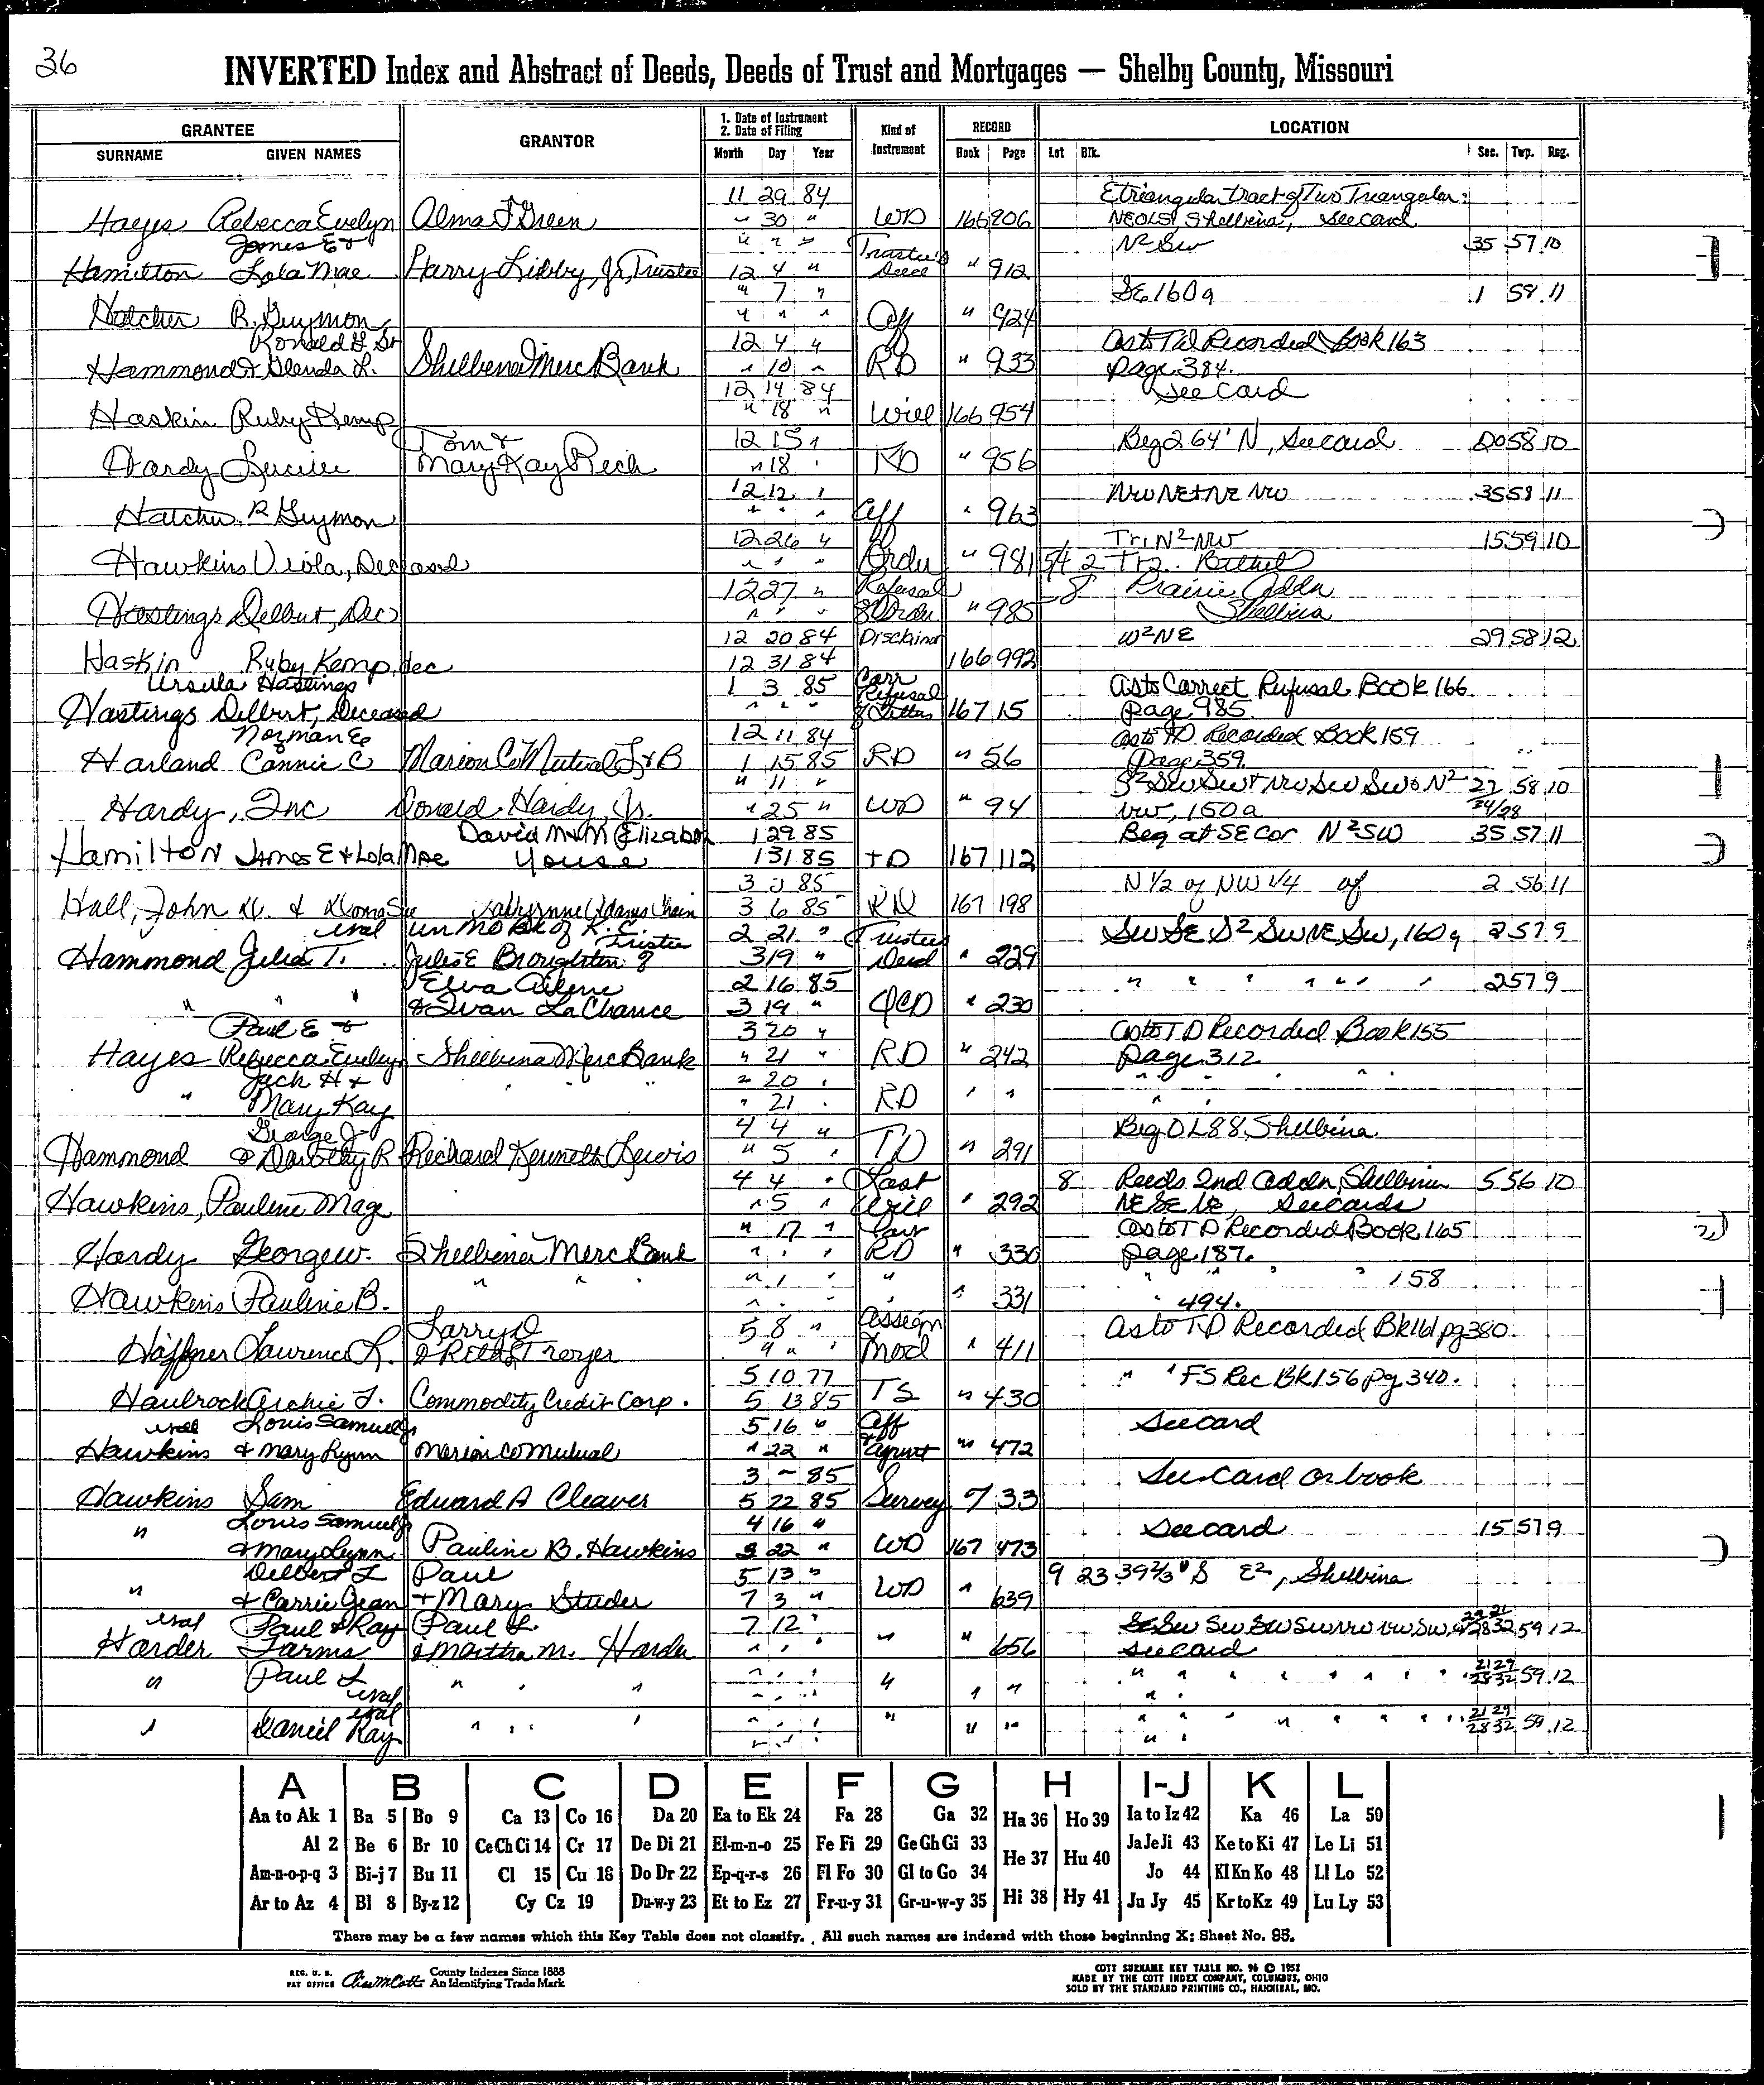 36
INVERTED Index and Abstract of Deeds, Deeds of Trust and Mortgages — Shelby County, Missouri
GRANTEE
SURNAME GIVEN NAMES
GRANTOR
1. Date of Instrument
2. Date of Filing
Month Day Year
Kind of
Instrument
RECORD
Book Page
LOCATION
Lot Blk. Sec. Twp. Rng.
11 29 84 E triangular tract of Two Triangular:
Hayes Rebecca Evelyn Alma F Green " 30 " WD 166 906 NEOLS, Shelbina, See card
James E & " " " Trustee's N² SW 35 57 10
Hamilton Lola Mae Harry Libby, Jr, Trustee 12 4 " Deed " 912
" 7 " SE 160 a 1 58 11
Hatcher R. Guymon " " " Aff " 924
Ronald G Sr 12 4 " As to TD Recorded Book 163
Hammond & Glenda L. Shelbina Merc Bank " 10 " RD " 933 page 384.
12 14 84 See Card
Haskin Ruby Kemp " 18 " Will 166 954
Tom & 12 15 " Beg 264' N, See card 20 58 10
Hardy Mary Kay Rech " 18 " " 956
12 12 " NW NE & NE NW 35 58 11
Hatcher R Guymon " " " Aff " 963
12 26 " Tr in N² NW 15 59 10
Hawkins Viola, Deceased " " " Order " 981 54 2 Tr 2 Bethel
12 27 " Refusal 8 Prairie Addn
Hastings Delbert, Dec " " " & Order " 985 Shelbina
12 20 84 W² NE 29 58 12
Haskin Ruby Kemp, dec 12 31 84 166 992
Ursula Hastings 1 3 85 Corr Refusal As to Correct Refusal Book 166
Hastings Delbert, Deceased " " " & Letters 167 15 page 985.
Norman & 12 11 84 As to TD Recorded Book 159
Harland Connie C Marion Co Mutual I & B 1 15 85 RD " 56 Page 359.
" 11 " S² SW SW & NW SW SW & N² 22 58 10
Hardy, Inc Donald Hardy, Jr. " 25 " WD " 94 NW, 150 a 24/28
David M & M Elizabeth 1 29 85 Beg at SE Cor N² SW 35 57 11
Hamilton James E & Lola Mae Youse 1 31 85 TD 167 112
85 N 1/2 of NW 1/4 of 2 56 11
Hall, John D. & Dona Sue 3 6 85 167 198
Un Mo Bk of K.C. Trustee 2 21 " Trustee SW SE S² SW NE SW, 160 a 2 57 9
Hammond Julia T. Julis E Broughton 3 19 " Deed " 229
Elva Arlene 2 16 85 " " " " " " " 2 57 9
" " " & Ivan LaChance 3 19 " QCD " 230
Paul E & 3 20 " As to TD Recorded Book 155
Hayes Rebecca Evelyn Shelbina Merc Bank " 21 " RD " 242 page 312
Jack H & " " " " 20 " " " " "
" Mary Kay " 21 " RD " " " "
George J 4 4 " Beg OL 88 Shelbina
Hammond & Dorothy R Richard Kenneth Lewis " 5 " TD " 291
4 4 " Last 8 Reeds 2nd Addn, Shelbina 5 56 10
Hawkins, Pauline Mae " 5 " Will " 292 NE SE See cards
" 17 " Part As to TD Recorded Book 165
Hardy George W. Shelbina Merc Bank " " " RD " 330 page 187.
" " " " " " " " 158
Hawkins Pauline B. " " " 331 " 494.
Larry D 5 8 " Assign As to TD Recorded Bk 161 pg 380.
Haffner Laurence L. & Rita Troyer " 9 " Mod " 411
5 10 77 " " FS Rec Bk 156 pg 340.
Archie F. Commodity Credit Corp. 5 13 85 TS " 430
Louis Samuel Jr 5 16 " Aff See card
Hawkins & Mary Lynn Marion Co Mutual " 22 " & Agrmt " 472
3 - 85 See Card or book
Hawkins Sam Edward A Cleaver 5 22 85 Survey 7 33
" Louis Samuel Jr 4 16 " See card 15 57 9
& Mary Lynn Pauline B. Hawkins 5 22 " WD 167 473
Delbert L Paul 5 13 " 9 23 39 2/3' S E², Shelbina
" & Carrie Jean & Mary Studer 7 3 " WD " 639
Paul & Ray Paul L. 7 12 " 29 21 28 32 59 12
Harder Farms & Martha M. Harder " " " " " 656 See card
" Paul L " " " " " " " " " " " " " " " " 21 29 28 32 59 12
" Daniel Ray " " " " " " " " " " " " " " " " 21 29 28 32 59 12
A B C D E F G H I-J K L
Aa to Ak 1 Ba 5 Bo 9 Ca 13 Co 16 Da 20 Ea to Ek 24 Fa 28 Ga 32 Ha 36 Ho 39 Ia to Iz 42 Ka 46 La 50
Al 2 Be 6 Br 10 Ce Ch Ci 14 Cr 17 De Di 21 El-m-n-o 25 Fe Fi 29 Ge Gh Gi 33 He 37 Hu 40 Ja Je Ji 43 Ke to Ki 47 Le Li 51
Am-n-o-p-q 3 Bi-j 7 Bu 11 Cl 15 Cu 18 Do Dr 22 Ep-q-r-s 26 Fl Fo 30 Gl to Go 34 Jo 44 Kl Kn Ko 48 Ll Lo 52
Ar to Az 4 Bl 8 By-z 12 Cy Cz 19 Du-w-y 23 Et to Ez 27 Fr-u-y 31 Gr-u-w-y 35 Hi 38 Hy 41 Ju Jy 45 Kr to Kz 49 Lu Ly 53
There may be a few names which this Key Table does not classify. All such names are indexed with those beginning X; Sheet No. 95.
REG. U. S.
PAT OFFICE
County Indexes Since 1888
An Identifying Trade Mark
COTT SURNAME KEY TABLE NO. 96 © 1951
MADE BY THE COTT INDEX COMPANY, COLUMBUS, OHIO
SOLD BY THE STANDARD PRINTING CO., HANNIBAL, MO.